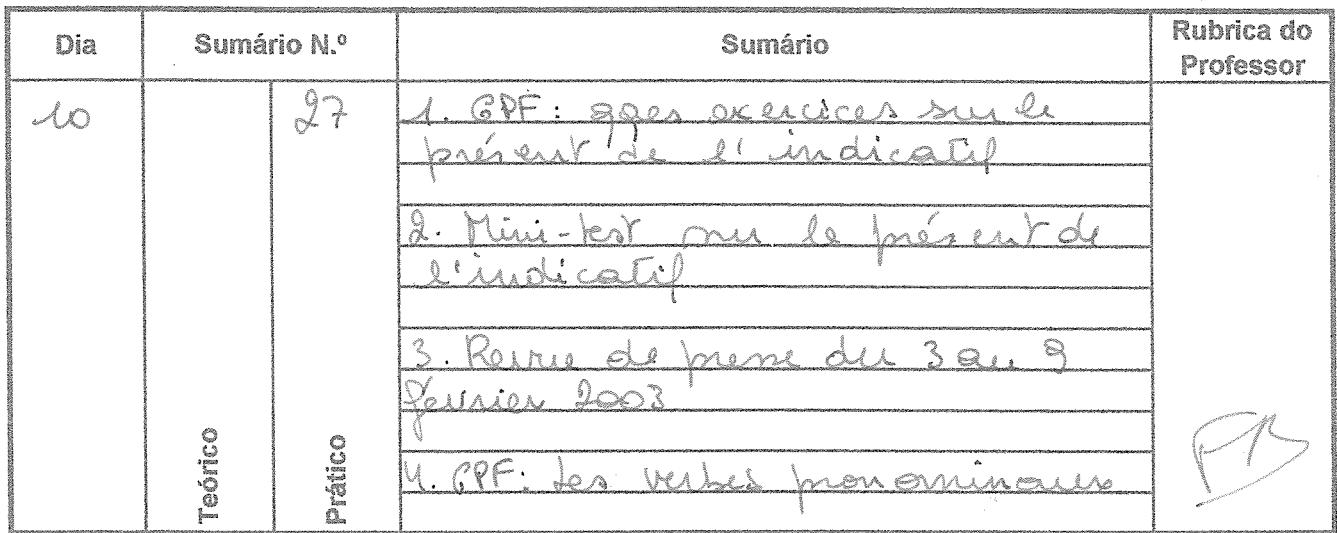 Dia Sumário N.º Sumário Rubrica do Professor
Teórico Prático
10 27 1. GPF: qques exercices sur le
présent de l'indicatif
2. Mini-test sur le présent de
l'indicatif
3. Revue de presse du 3 au 9
février 2003
4. GPF: Les verbes pronominaux